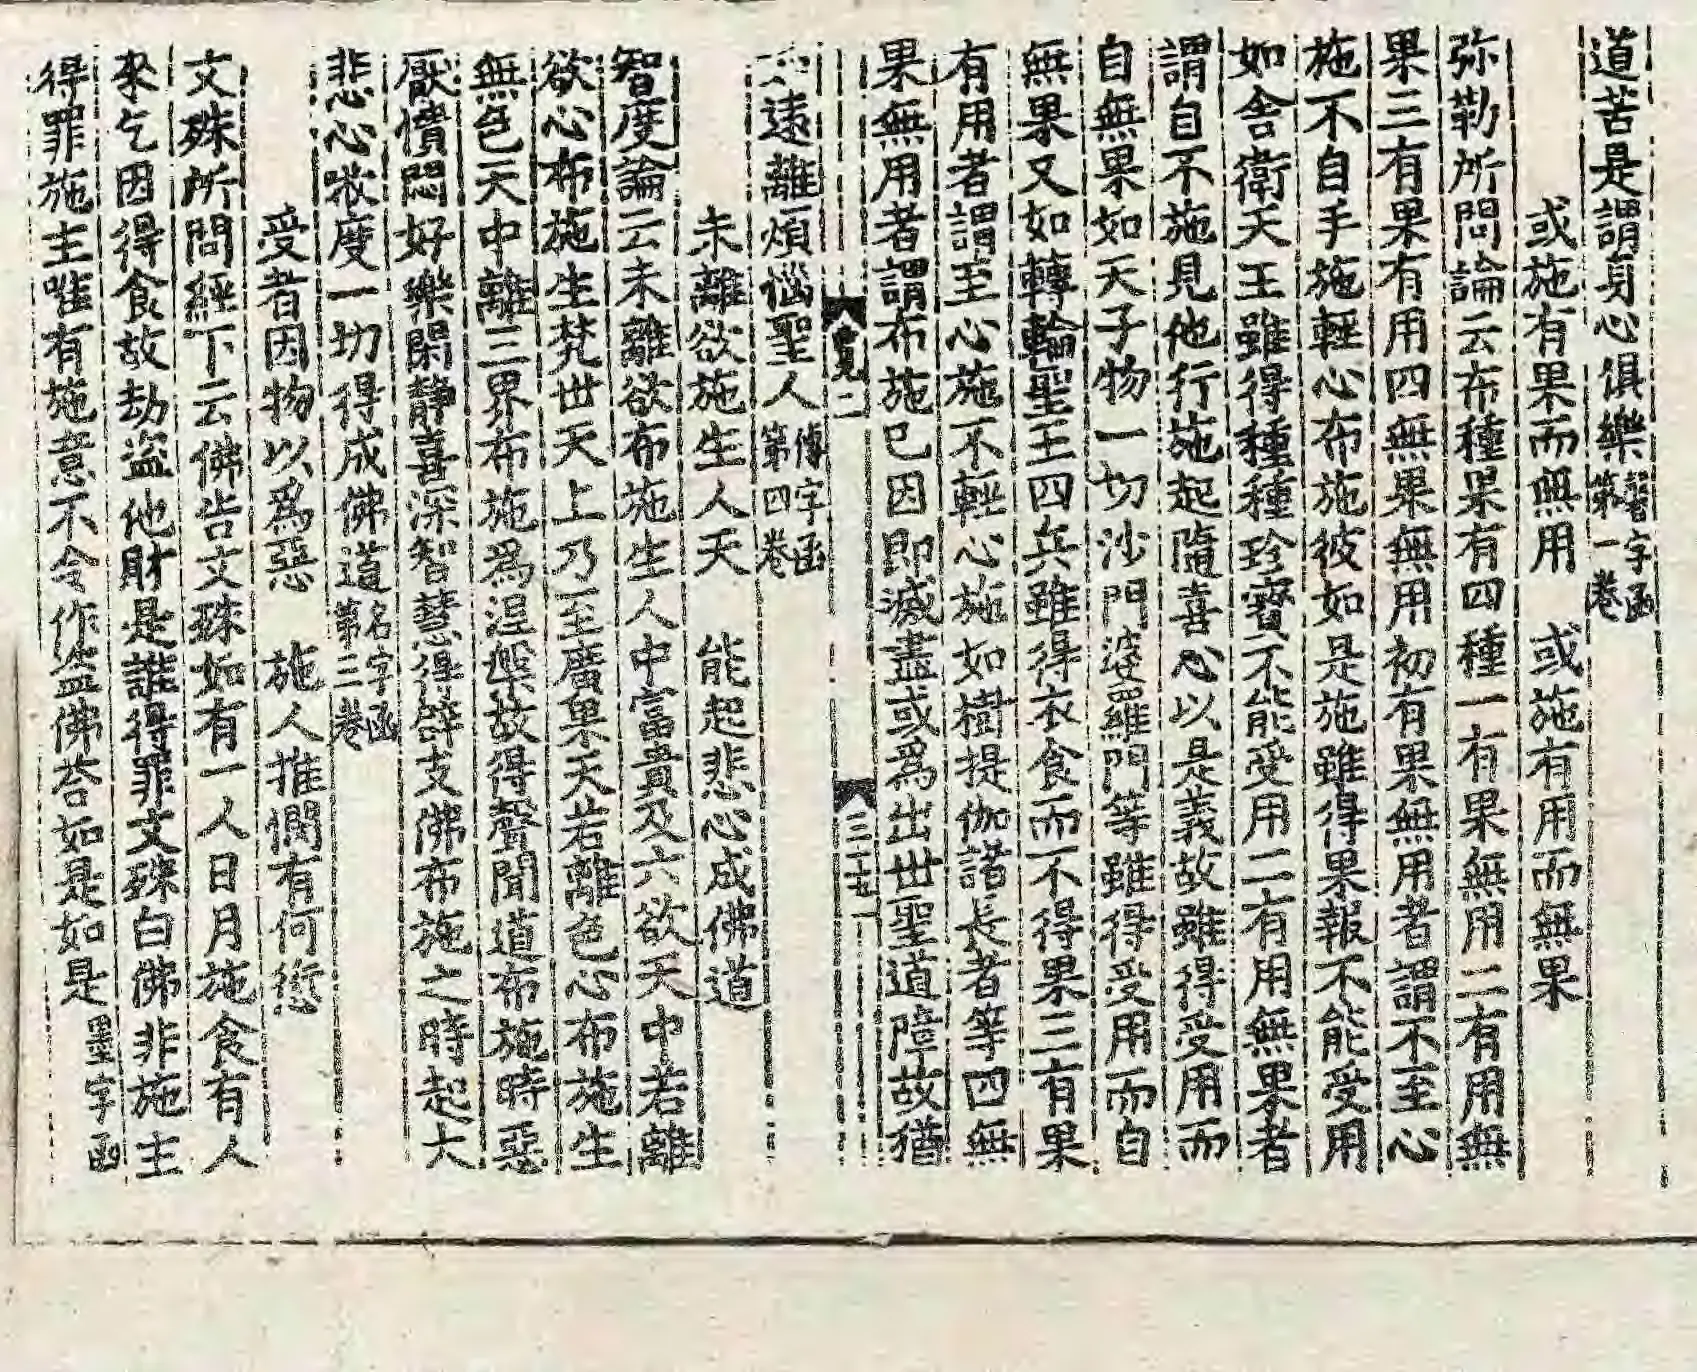 道苦是謂身心俱樂磬字函第一卷
或施有果而無用　或施有用而無果
弥勒所問論云布種果有四種一有果無用二有用無
果三有果有用四無果無用初有果無用者謂不至心
施不自手施輕心布施彼如是施雖得果報不能受用
如舍衛天王雖得種種珍寶不能受用二有用無果者
謂自不施見他行施起隨喜心以是義故雖得受用而
自無果如天子物一切沙門婆羅門等雖得受用而自
無果又如轉輪聖王四兵雖得衣食而不得果三有果
有用者謂至心施不輕心施如樹提伽諸長者等四無
果無用者謂布施已因即滅盡或爲出世聖道障故猶
二　三十五
遠離煩惱聖人傅字函第四卷
未離欲施生人天　能起悲心成佛道
智度論云未離欲布施生人中富貴及六欲天中若離
欲心布施生梵世天上乃至廣果天若離色心布施生
無色天中離三界布施爲涅槃故得聲聞道布施時惡
厭憒閙好樂閑靜喜深智慧得辟支佛布施之時起大
悲心欲度一切得成佛道名字函第三卷
受者因物以爲惡　施人推憫有何愆
文殊所問經下云佛告文殊如有一人日月施食有人
來乞因得食故劫盜他財是誰得罪文殊白佛非施主
得罪施主唯有施意不令作盜佛荅如是如是墨字函